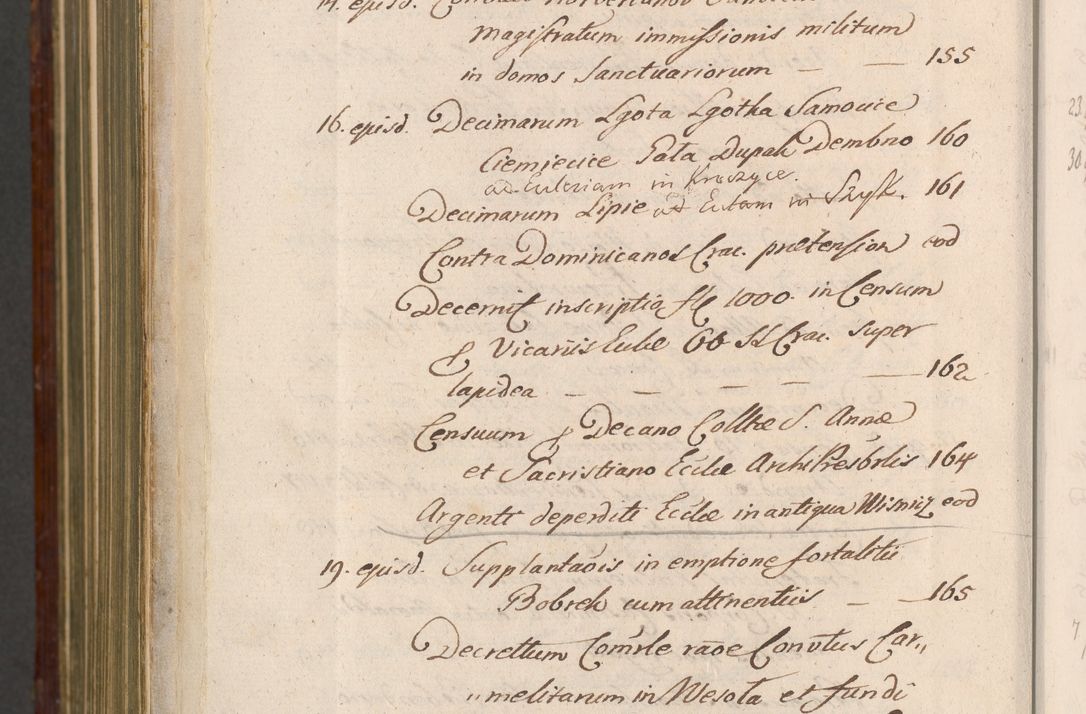 14. episd.
magistratum immissionis militum
in domos Sanctuariorum — — 155
16. episd. Decimarum Lgota Lgotka Samowice
Ciemięcice Pała Dupak Dembno 160
in Kroczyce.
Decimarum Lipie ad in Szysk. 161
Contra Dominicanos Crac. prætension eod
Decernit inscriptio fl 1000. in Censum
p Vicariis Eccle 66 Crac. super
lapidea — — — — 162
Censuum p Decano Colltæ S. Annæ
et Sacristiano Ecclæ ArchiPresbrlis 164
Argenti deperditi Ecclæ in antiqua Wisnicz eod
19. episd. Supplantaōis in emptione fortalitii
Bobrek cum attinentiis — — 165
Decrettum Comsle raōe Convtus Car„
„melitarum in Wesoła et fundi